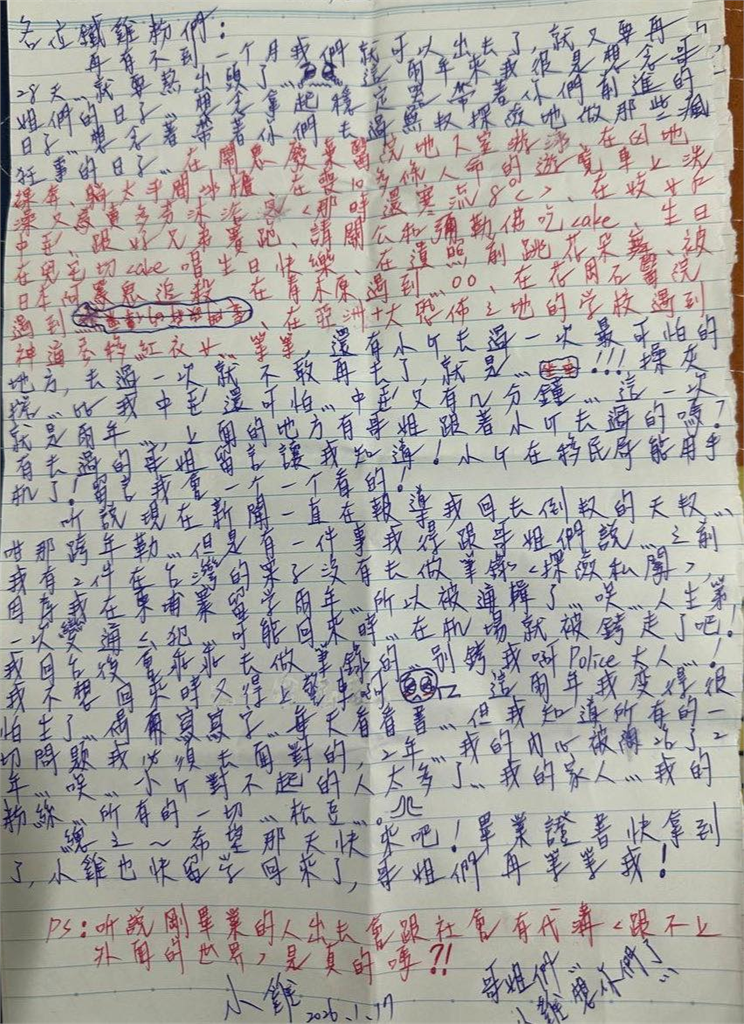 各位鐵雞粉們：
再有不到一個月我們就可以出去了，就又要再
28天…就要熬出頭了…這兩年來我很是想念哥
姐們的日子…想念拿起穩定器帶著你們前進的
日子…想念著帶著你們去過無數探險地做那些瘋
狂事的日子…在鬧鬼廢棄醫院地下室游泳、在凶地
裸奔、躺太平間冰櫃、在死10多條人命的遊覽車上洗
澡又殺賣多芬沐浴乳<那時還寒流8°C>、在妓女戶
中邪、跟好兄弟賽跑、請關公和彌勒佛吃cake、生日
在鬼宅切cake唱生日快樂、在遺照前跳花朵舞、被
日本阿飄鬼追殺、在青木原遇到…○○、在花岡石醫院
遇到、在亞洲十大恐怖之地的学校遇到
神道吞移紅衣女…等等，還有小ㄐ去過一次最可怕的
地方，去過一次就不敢再去了，就是…!!! 操灰
捱…比我中邪還可怕…中邪又有几分鐘…這一次
就是兩年…，上面的地方有哥姐跟著小ㄐ去過的嗎？
有去過的哥姐留言讓我知道！小ㄐ在移民局能用手
机了！留言我會一个一个看的！
听説現在新聞一直在報導我回去倒数的天数…
咁那跨年勒…但是有一件事我得跟哥姐們説…之前
我有2件在台灣的案子沒有去做筆錄<探險私闖>，
因為我在柬埔寨留学兩年…所以被通緝了…唉…人生第
一次變通緝犯…可能回來時…在机場就被銬走了吧！
我回台後會乖乖去做筆錄的…別銬我啊Police大人…！
我不想回來時又得上警車啊 這兩年我变得很
怕生了…偶爾寫寫字…每天看看書…但我知道所有的一
切問題我必須去面對的，2年…我的内心被關了2
年…唉…小ㄐ對不起的人太多了…我的家人…我的
粉絲…所有的一切…松豆…。
總之～希望那天快來吧！畢業證書快拿到
了，小雞也快留学回來了，哥姐們再等等我！
PS：听説剛畢業的人出去會跟社會有代溝<跟不上
外面的世界>是真的嗎？！
哥姐們…
小雞想你們了…
小雞 2026.1.17